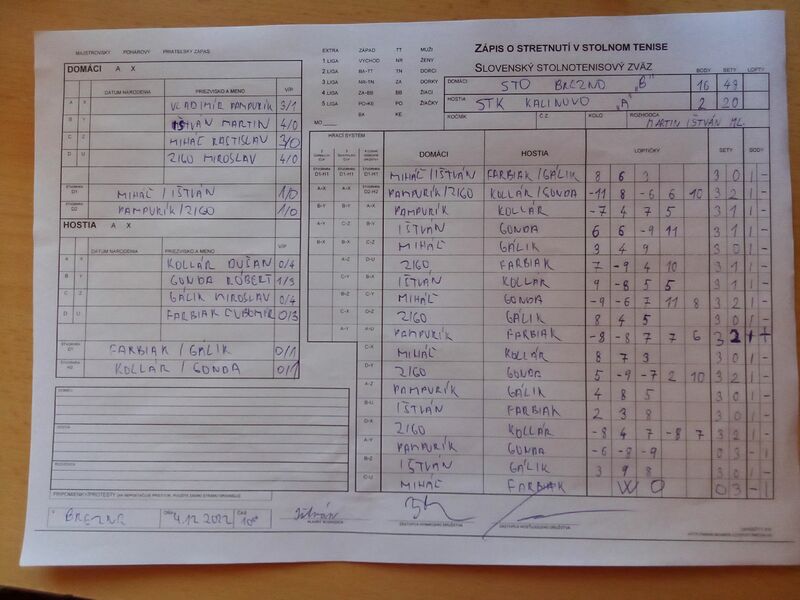 MAJSTROVSKÝ POHÁROVÝ PRIATEĽSKÝ ZÁPAS
EXTRA ZÁPAD TT MUŽI
1 LIGA VÝCHOD NR ŽENY
2 LIGA BA-TT TN DORCI
3 LIGA NR-TN ZA DORKY
4 LIGA ZA-BB BB ŽIACI
5 LIGA PO-KE PO ŽIAČKY
BA KE
ZÁPIS O STRETNUTÍ V STOLNOM TENISE
SLOVENSKÝ STOLNOTENISOVÝ ZVÄZ
BODY SETY LOPTY
DOMÁCI STO BREZNO "B" 16 49
HOSTIA STK KALINOVO "A" 2 20
ROČNÍK Č.Z. KOLO ROZHODCA
MARTIN IŠTVÁN ML.
DOMÁCI A X
DÁTUM NARODENIA PRIEZVISKO A MENO V/P
A X VLADIMÍR PAMPURÍK 3/1
B Y IŠTVAN MARTIN 4/0
C Z MIHÁĽ RASTISLAV 3/0
D U ZIGO MIROSLAV 4/0
ŠTVORHRA D1 MIHÁĽ / IŠTVÁN 1/0
ŠTVORHRA D2 PAMPURÍK / ZIGO 1/0
HOSTIA A X
DÁTUM NARODENIA PRIEZVISKO A MENO V/P
A X KOLLÁR DUŠAN 0/4
B Y GONDA RÓBERT 1/3
C Z GÁLIK MIROSLAV 0/4
D U FARBIAK ĽUBOMÍR 0/3
ŠTVORHRA H1 FARBIAK / GÁLIK 0/1
ŠTVORHRA H2 KOLLÁR / GONDA 0/1
HRACÍ SYSTÉM DOMÁCI HOSTIA LOPTIČKY SETY BODY
MIHÁĽ / IŠTVÁN FARBIAK / GÁLIK 8 6 3 3 0 1 -
PAMPURÍK / ZIGO KOLLÁR / GONDA -11 8 -6 6 10 3 2 1 -
PAMPURÍK KOLLÁR -7 4 7 5 3 1 1 -
IŠTVÁN GONDA 6 6 -9 11 3 1 1 -
MIHÁĽ GÁLIK 3 4 9 3 0 1 -
ZIGO FARBIAK 7 -9 4 10 3 1 1 -
IŠTVÁN KOLLÁR 9 -8 5 5 3 1 1 -
MIHÁĽ GONDA -9 -6 7 11 8 3 2 1 -
ZIGO GÁLIK 8 4 5 3 0 1 -
PAMPURÍK FARBIAK -8 -8 7 7 6 3 2
MIHÁĽ KOLLÁR 8 7 3 3 0 1 -
ZIGO GONDA 5 -9 -7 2 10 3 2 1 -
PAMPURÍK GÁLIK 4 8 5 3 0 1 -
IŠTVÁN FARBIAK 2 3 8 3 0 1 -
ZIGO KOLLÁR -8 4 7 -8 7 3 2 1 -
PAMPURÍK GONDA -6 -8 -9 0 3 - 1
IŠTVÁN GÁLIK 3 9 8 3 0 1 -
MIHÁĽ FARBIAK WO 0 3 - 1
DOMÁCI
HOSTIA
ROZHODCA
BREZNE 4.12.2022
Ištván
HLAVNÝ ROZHODCA
ZÁSTUPCA DOMÁCEHO DRUŽSTVA
ZÁSTUPCA HOSŤUJÚCEHO DRUŽSTVA